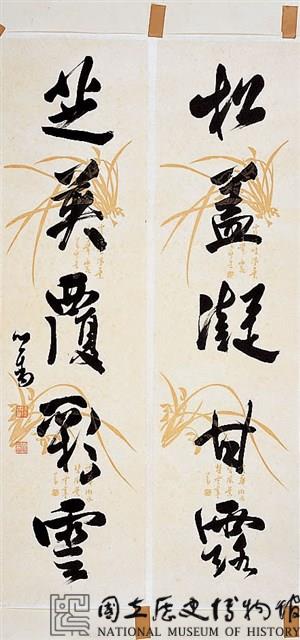 松蓋凝甘露
芝英覆彩雲
心畬
國立歷史博物館
NATIONAL MUSEUM OF HISTORY